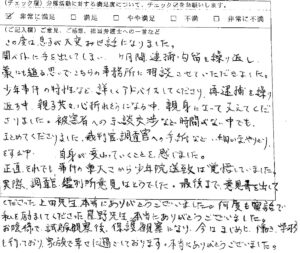 (チェック欄) 弁護活動に対する満足度について、チェックをお願いします。
☑ 非常に満足 □ 満足 □ やや満足 □ 不満 □ 非常に不満
(ご記入欄) ご意見、ご感想、担当弁護士への一言など
この度は息子が大変お世話になりました。
闇バイトに手を出してしまい、逮捕・勾留を繰り返し、
藁にも縋る思いでこちらの事務所に相談させていただきました。
少年事件の特性など、詳しくアドバイスしてくださり、再逮捕を繰り
返す中、親子共々心折れそうになる中、親身になって支えてくだ
さいました。被害者への示談交渉など時間がない中でも、
まとめてくださいました。裁判官、調査官への手紙など、細かなやりとり
をする中、自身が変わっていくことを感じました。
正直、それでも事件の重大さから少年院送致は覚悟していました。
実際、調査官、鑑別所意見はそうでした。最後まで、意見書を出して
くださった上田先生本当にありがとうございました。何度も電話で
私を励ましてくださった星野先生、本当にありがとうございました。
お陰様で、試験観察後、保護観察になり、今はまじめに働き、学校
も行っており、家族で幸せに過ごしております。本当にありがとうございました。